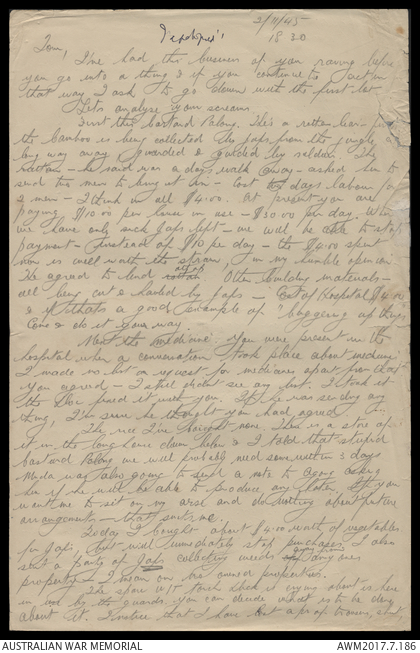 2/11/45
"Apologies"
18 30
Tom,
I've had this business of you raving before
you go into a thing & if you continue to act in
that way I ask to go down with the first lot
Let's analyse your screams.
First this bastard Balong. He's a rotten liar for
the bamboo is being collected by Japs from the jungle a
long way away guarded & guided by soldiers. The
he said was a days walk away - asked him to
send two men to bring it in - cost days labour for
2 men - I think in all $4.00. At present you are
paying $10.00 per house in use - $30.00 per day. When
we have only such Japs left - we will be able to stop
payment - Instead of $10 per day - the $4.00 spent
now is well worth the straw, in my humble opinion
He agreed to lend Other building materials -
all being cut & hauled by Japs - Cost of Hospital $4.00
& If thats a good example of "buggering up things
Come & do it your way
Next the medicine you were present in the
hospital when a conversation took place about medicine
I made no list or request for medicines apart from that
you agreed - I still didn't see any list. I took it
the Dr fixed it with you. If he was sending any
thing, I'm sure he thought you had agreed
The rice I've bought none. There is a store of
it in the long house down below & I told that stupid
bastard Balong we will probably need some within 3 days
was also going to send a note to Agong asking
him if he will be able to produce any later. If you
want me to sit on my arse and do nothing about future
arrangements - that suits me.
Today I bought about $4.00 worth of vegetables
for Japs, but will immediately stop purchases, I also
sent a party of Japs collecting weeds from anyones
property - I mean no one owned properties.
The spare W/T torch which is crying about is here
in use by the guards. you can decide what is to be done
about it. I notice that I have lost a pr of trousers, shirt
AUSTRALIAN WAR MEMORIAL
AWM2017.7.186